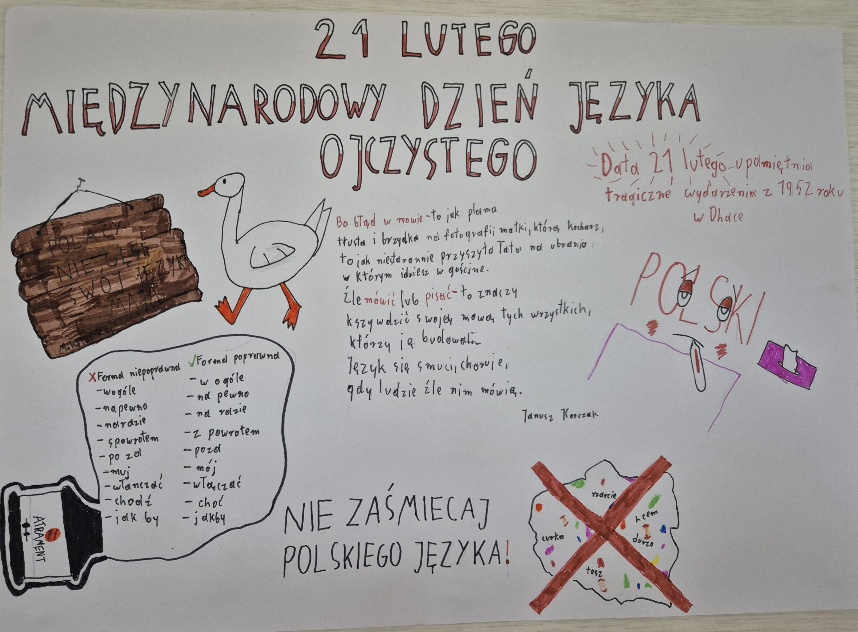 21 LUTEGO
MIĘDZYNARODOWY DZIEŃ JĘZYKA
OJCZYSTEGO
Data 21 lutego upamiętnia
tragiczne wydarzenia z 1952 roku
w Dhace
POLACY
NIE GĘSI
SWÓJ JĘZYK
MAJĄ
Bo błąd w mowie - to jak plama
tłusta i brzydka na fotografii matki, którą kochasz,
to jak niestarannie przyszyta łata na ubraniu
w którym idziesz w gościnę.
Źle mówić lub pisać - to znaczy
krzywdzić swoją mową tych wszystkich,
którzy ją budowali.
Język się smuci, choruje,
gdy ludzie źle nim mówią.
Janusz Korczak
POLSKI
X Forma niepoprawna
- wogóle
- napewno
- narazie
- spowrotem
- po za
- muj
- włanczać
- chodź
- jak by
✓ Forma poprawna
- w ogóle
- na pewno
- na razie
- z powrotem
- poza
- mój
- włączać
- choć
- jakby
ATRAMENT
NIE ZAŚMIECAJ
POLSKIEGO JĘZYKA!
curka
tesz